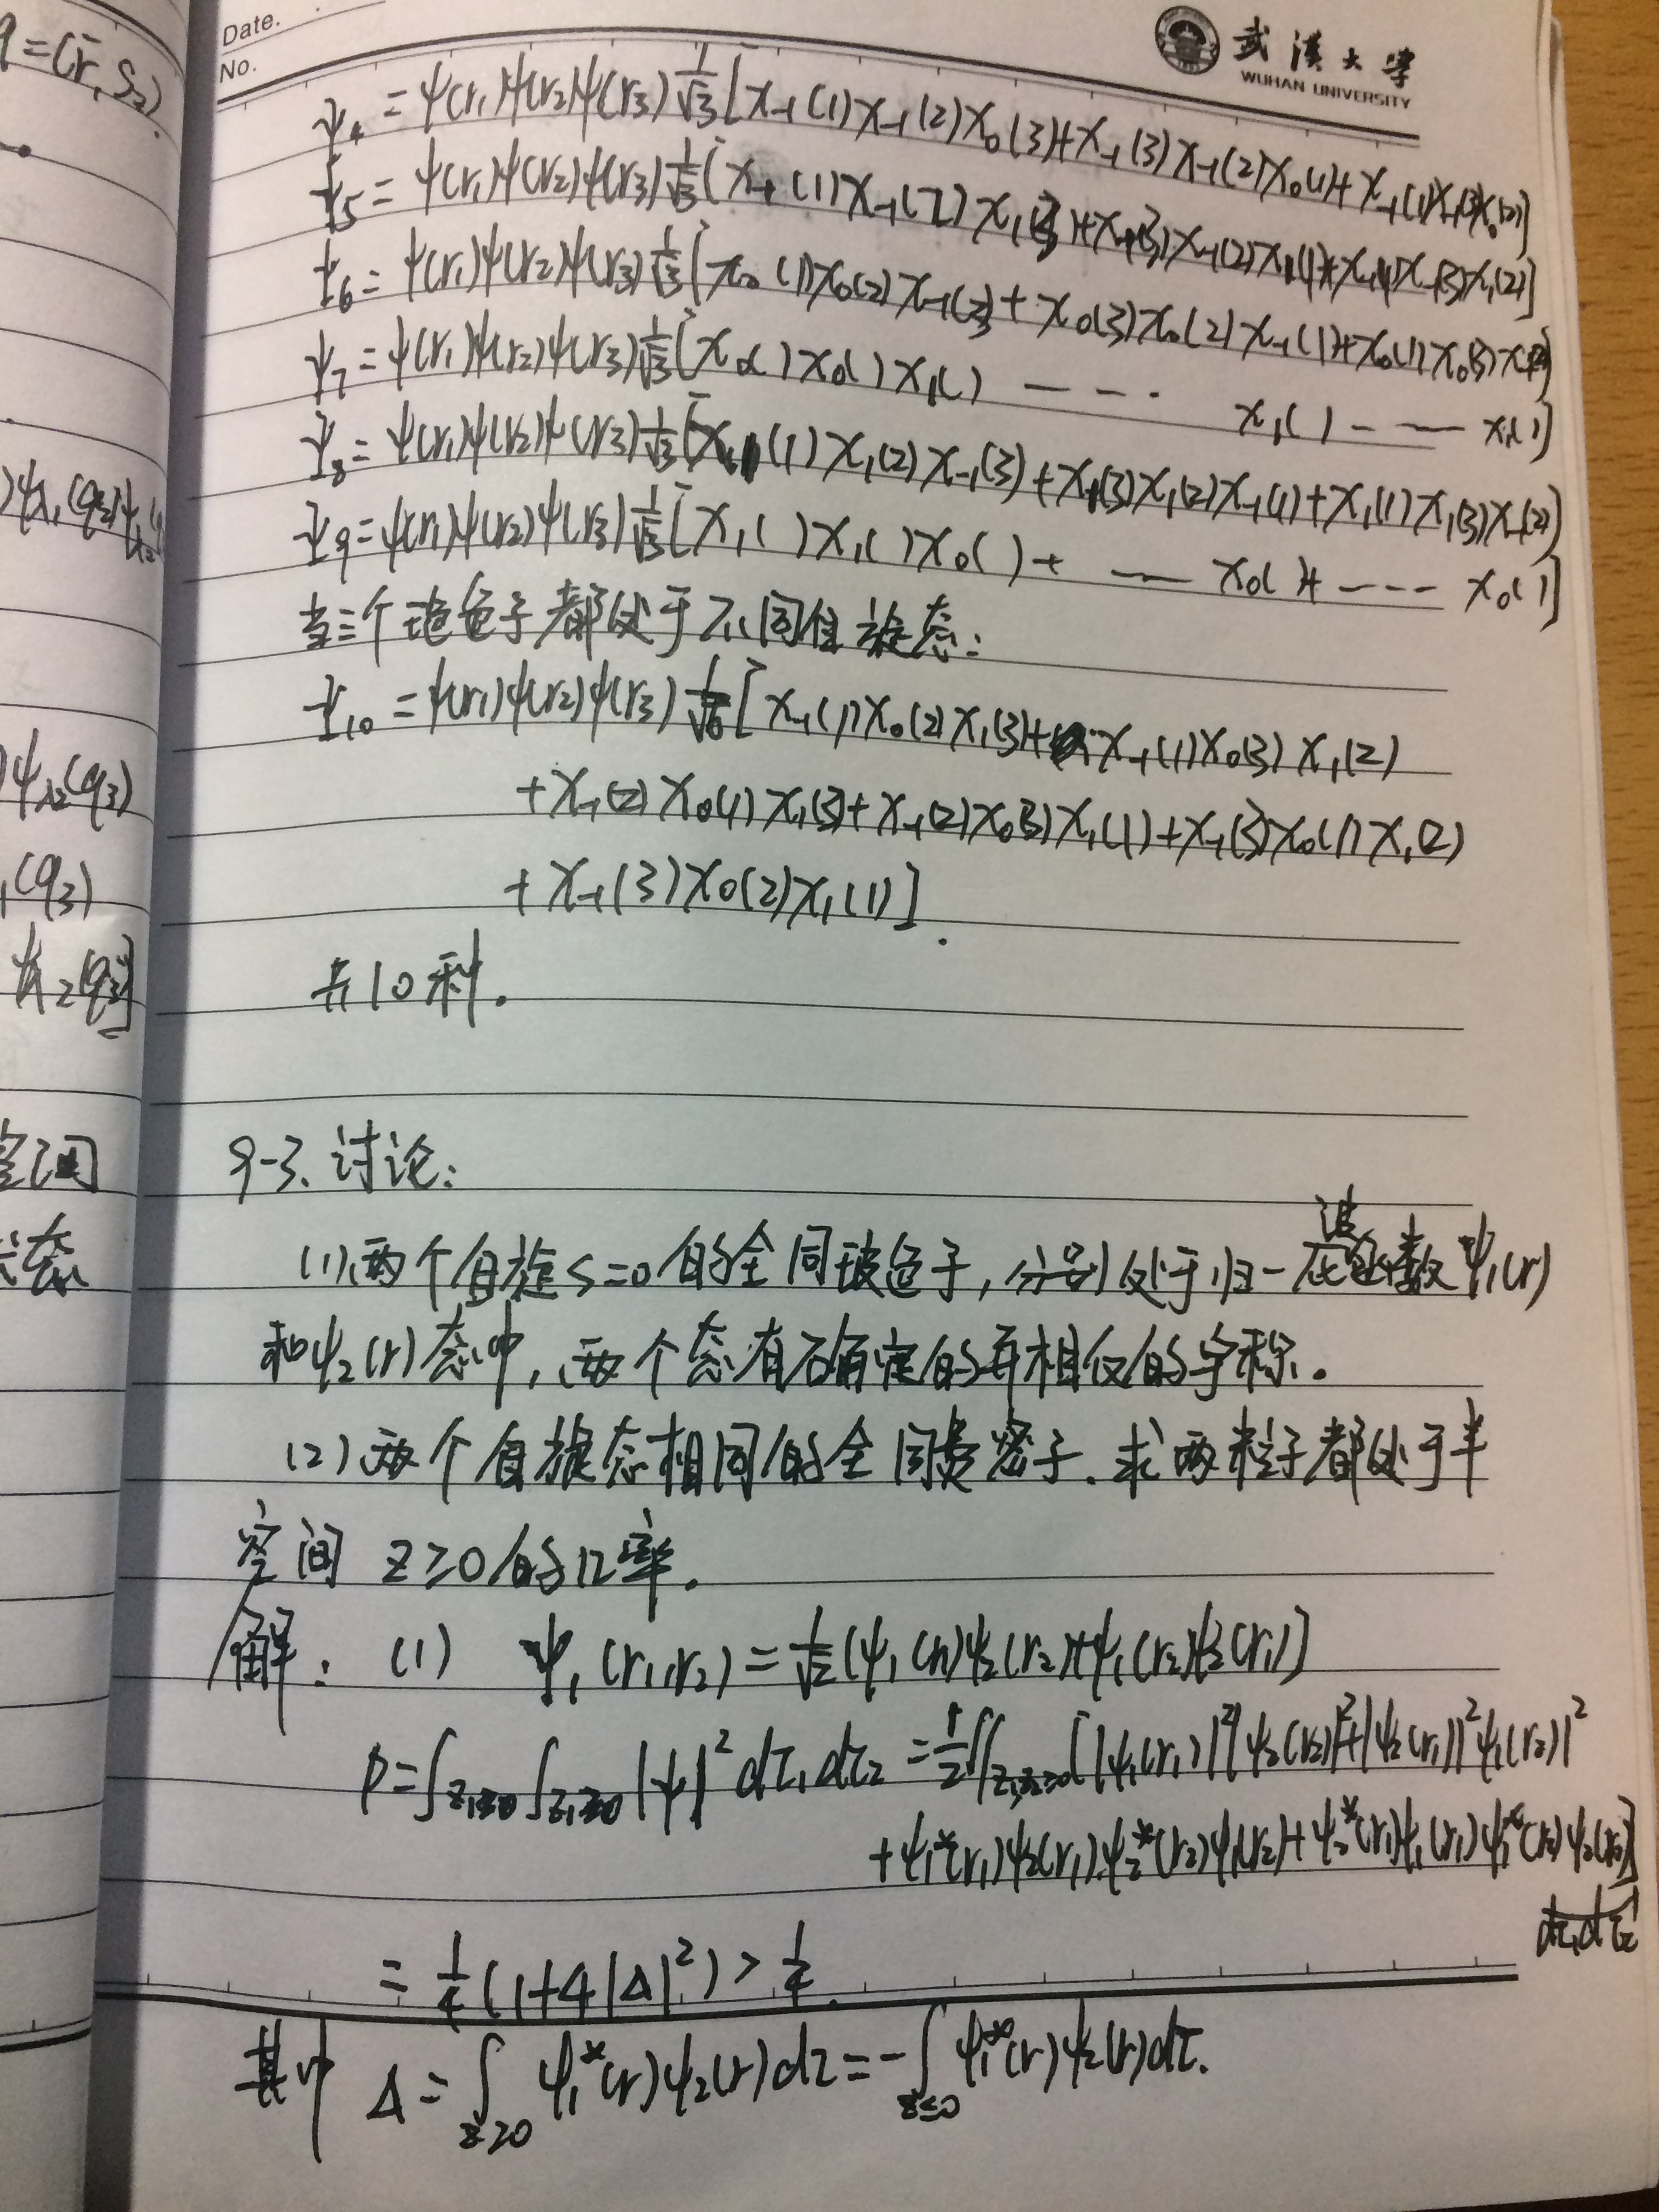 Date.
No.
武汉大学
WUHAN UNIVERSITY
q=(r,S_z).
Ψ₄ = ψ(r₁)ψ(r₂)ψ(r₃) 1/√3 [χ₋₁(1)χ₋₁(2)χ₀(3)+χ₋₁(3)χ₋₁(2)χ₀(1)+χ₋₁(1)χ₋₁(3)χ₀(2)]
Ψ₅ = ψ(r₁)ψ(r₂)ψ(r₃) 1/√3 [χ₋₁(1)χ₋₁(2)χ₁(3)+χ₋₁(3)χ₋₁(2)χ₁(1)+χ₋₁(1)χ₋₁(3)χ₁(2)]
Ψ₆ = ψ(r₁)ψ(r₂)ψ(r₃) 1/√3 [χ₀(1)χ₀(2)χ₋₁(3)+χ₀(3)χ₀(2)χ₋₁(1)+χ₀(1)χ₀(3)χ₋₁(2)]
Ψ₇ = ψ(r₁)ψ(r₂)ψ(r₃) 1/√3 [χ₀( )χ₀( )χ₁( ) ---- χ₁( ) ---- χ₁( )]
Ψ₈ = ψ(r₁)ψ(r₂)ψ(r₃) 1/√3 [χ₁(1)χ₁(2)χ₋₁(3)+χ₁(3)χ₁(2)χ₋₁(1)+χ₁(1)χ₁(3)χ₋₁(2)]
Ψ₉ = ψ(r₁)ψ(r₂)ψ(r₃) 1/√3 [χ₁( )χ₁( )χ₀( )+ ---- χ₀( )+ ---- χ₀( )]
当三个玻色子都处于不同自旋态:
Ψ₁₀ = ψ(r₁)ψ(r₂)ψ(r₃) 1/√6 [χ₋₁(1)χ₀(2)χ₁(3)+χ₋₁(1)χ₀(3)χ₁(2)
+χ₋₁(2)χ₀(1)χ₁(3)+χ₋₁(2)χ₀(3)χ₁(1)+χ₋₁(3)χ₀(1)χ₁(2)
+χ₋₁(3)χ₀(2)χ₁(1)].
共10种.
9-3. 讨论:
(1)、两个自旋s=0的全同玻色子,分别处于归一波函数ψ₁(r)
和ψ₂(r)态中,两个态有确定的再相反的宇称.
(2)两个自旋态相同的全同费密子.求两粒子都处于半
空间 z≥0的几率.
解: (1) Ψ₁(r₁,r₂) = 1/√2 [ψ₁(r₁)ψ₂(r₂)+ψ₁(r₂)ψ₂(r₁)]
P=∫_{z₁≥0}∫_{z₁≥0}|ψ|²dτ₁dτ₂ = 1/2∬_{z₁,z₂≥0}[|ψ₁(r₁)|²|ψ₂(r₂)|²+|ψ₂(r₁)|²ψ₁(r₂)|²
+ψ₁*(r₁)ψ₂(r₁)ψ₂*(r₂)ψ₁(r₂)+ψ₂*(r₁)ψ₁(r₁)ψ₁*(r₂)ψ₂(r₂)]
dτ₁dτ₂
= 1/4(1+4|Δ|²) > 1/4.
其中 Δ=∫_{z≥0} ψ₁*(r)ψ₂(r)dτ = -∫_{z≤0} ψ₁*(r)ψ₂(r)dτ.